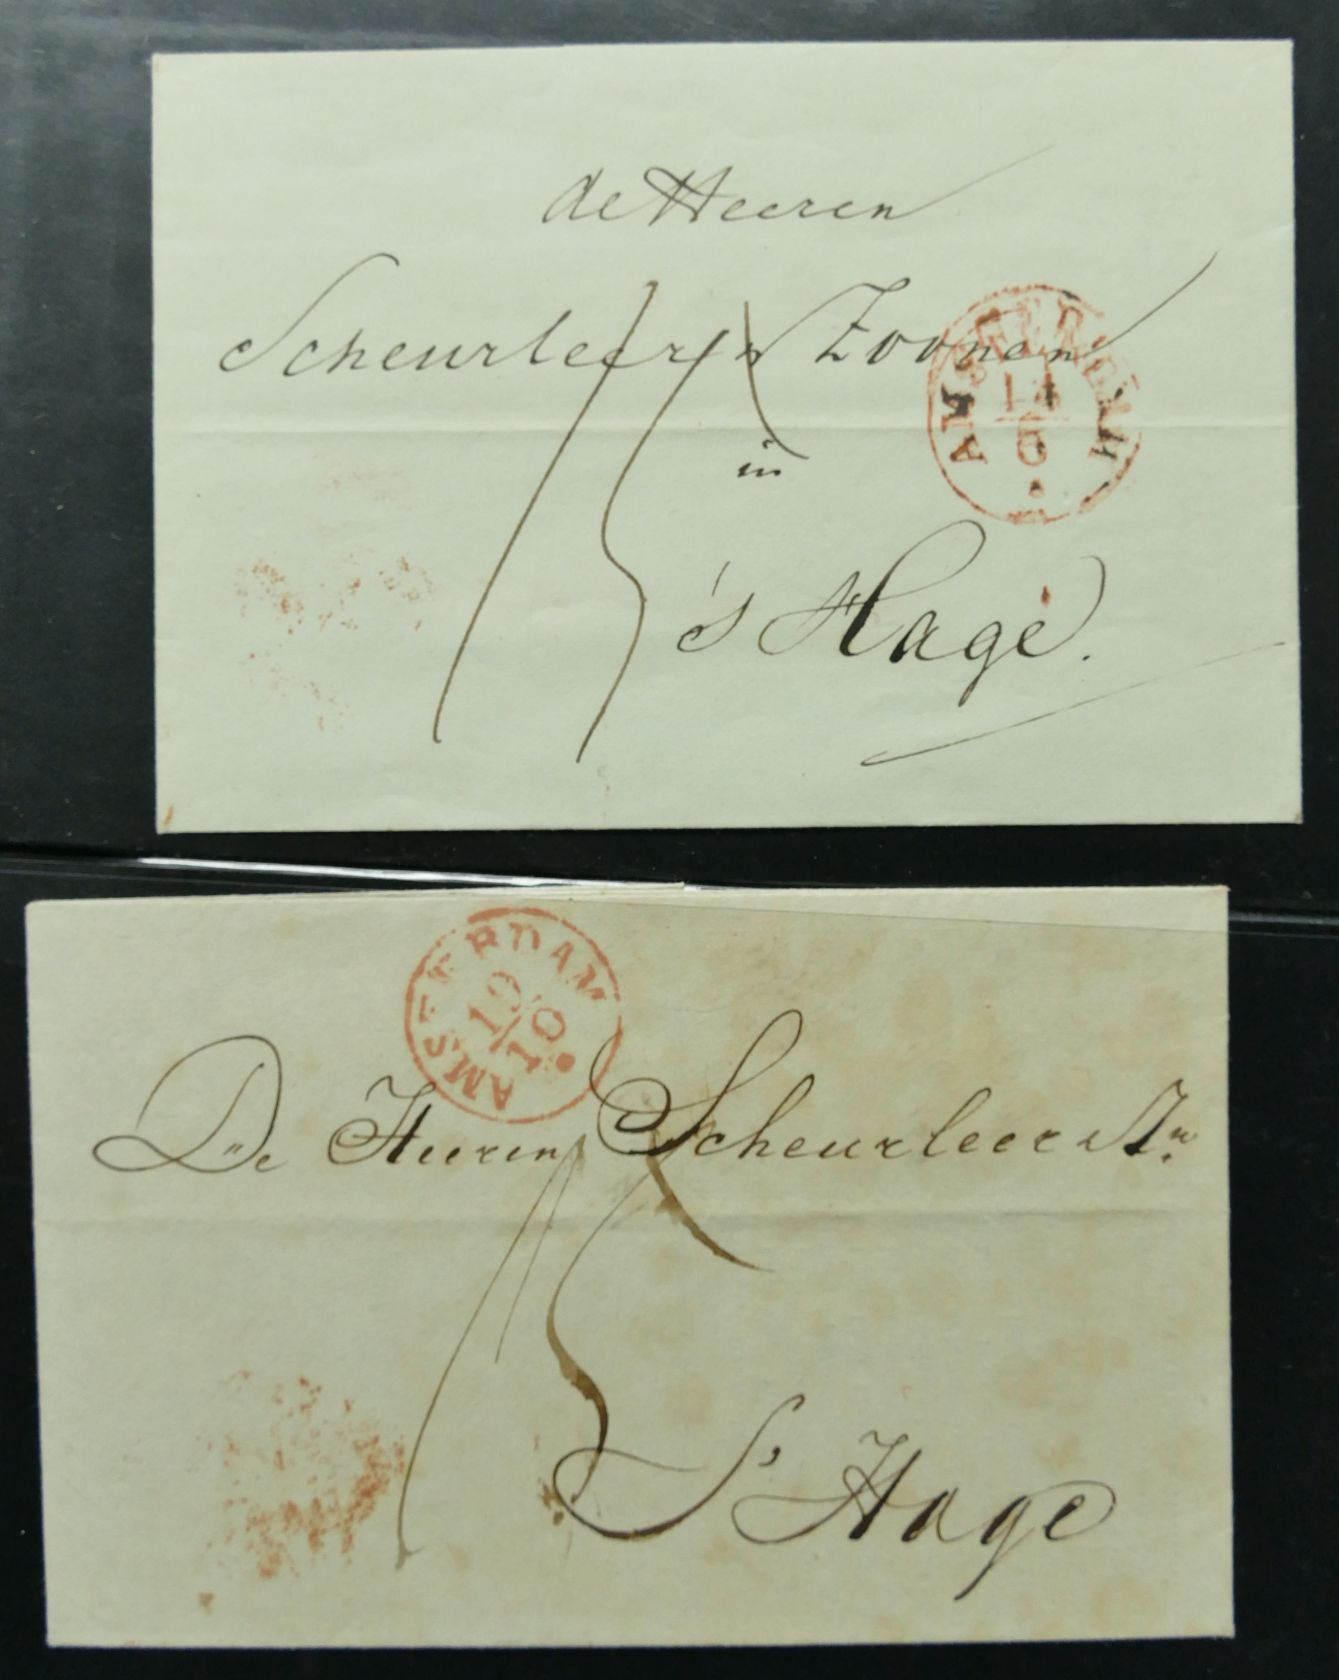 de Heeren
Scheurleer & Zoonen
15
in
's Hage.
AMSTERDAM
6
AMSTERDAM
19
10
De Heeren Scheurleer &
15
S' Hage